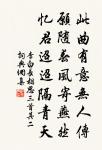 此曲有意無人傳
願隨春風寄燕然
憶君迢迢隔青天
李白長相思三首其二
詞典網集